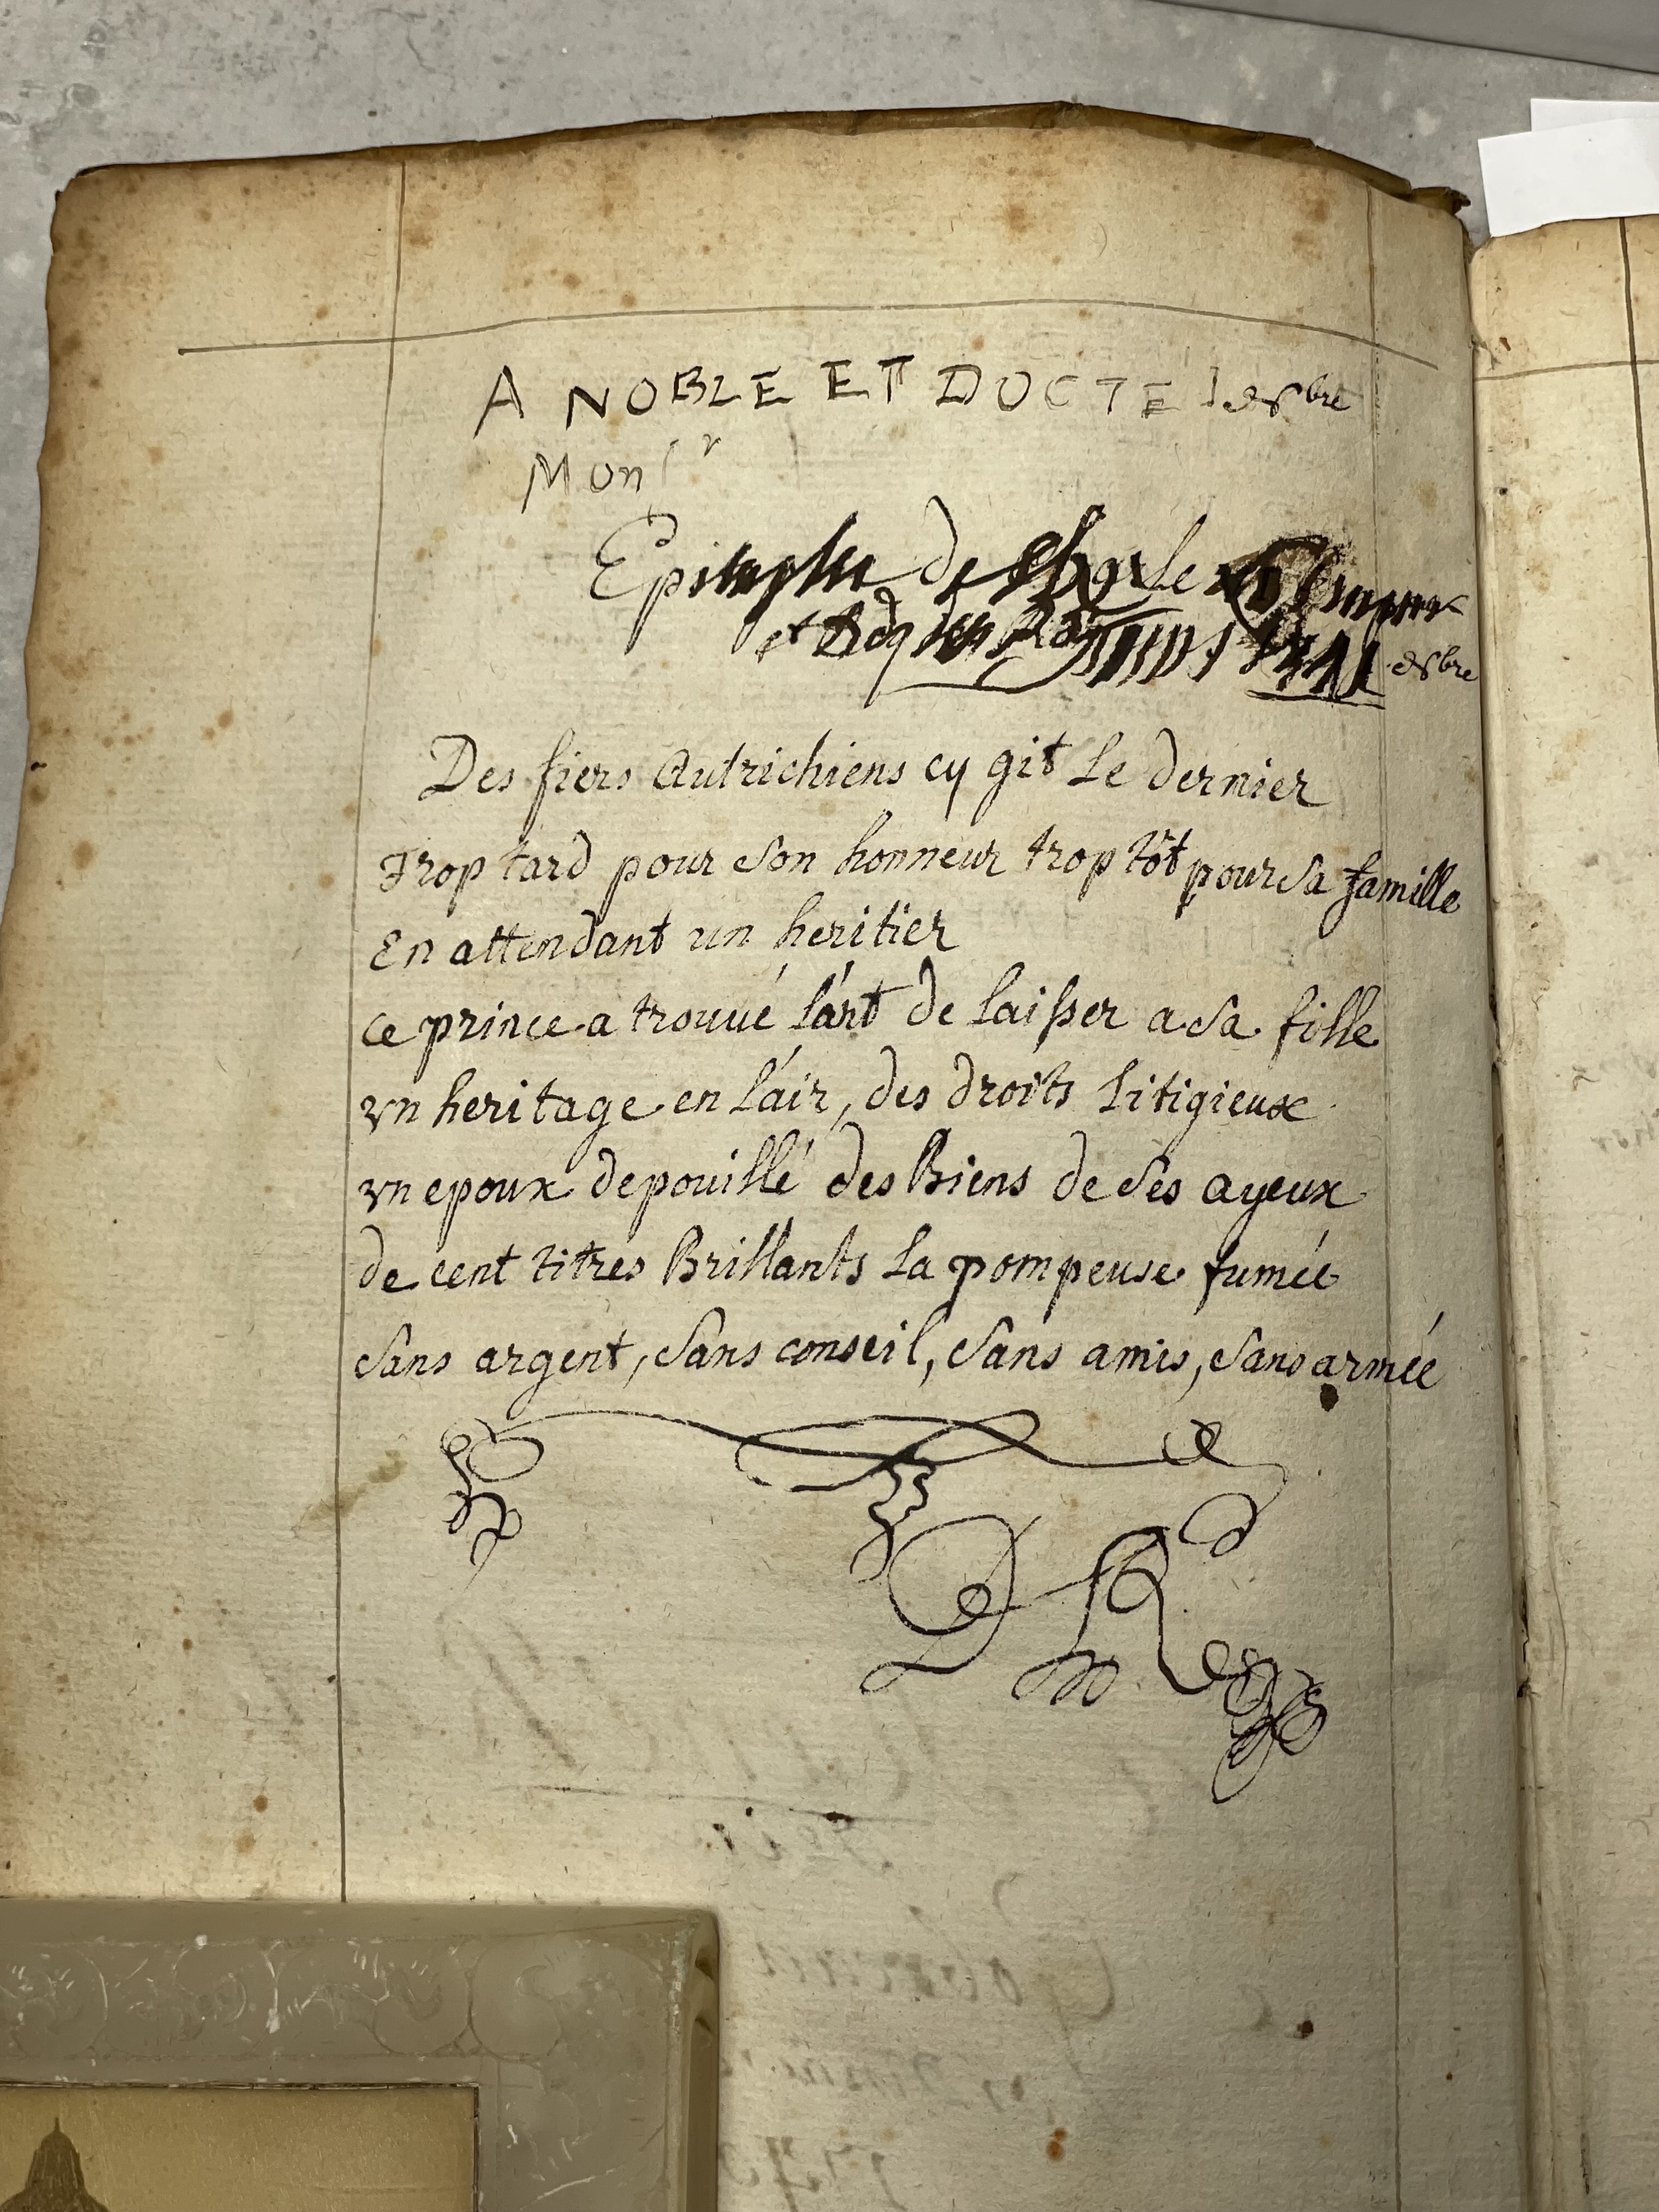 A NOBLE ET DOCTE
Monsr
Epitaphe de Charle
et
Des fiers Autrichiens cy git Le dernier
Trop tard pour son honneur trop tôt pour sa famille
En attendant un heritier
ce prince a trouué l'art de laisser a sa fille
vn heritage en l'air, des droits Litigieux
vn epoux depouillé des Biens de ses ayeux
de cent titres Brillants La pompeuse fumée
sans argent, sans conseil, sans amis, sans armée